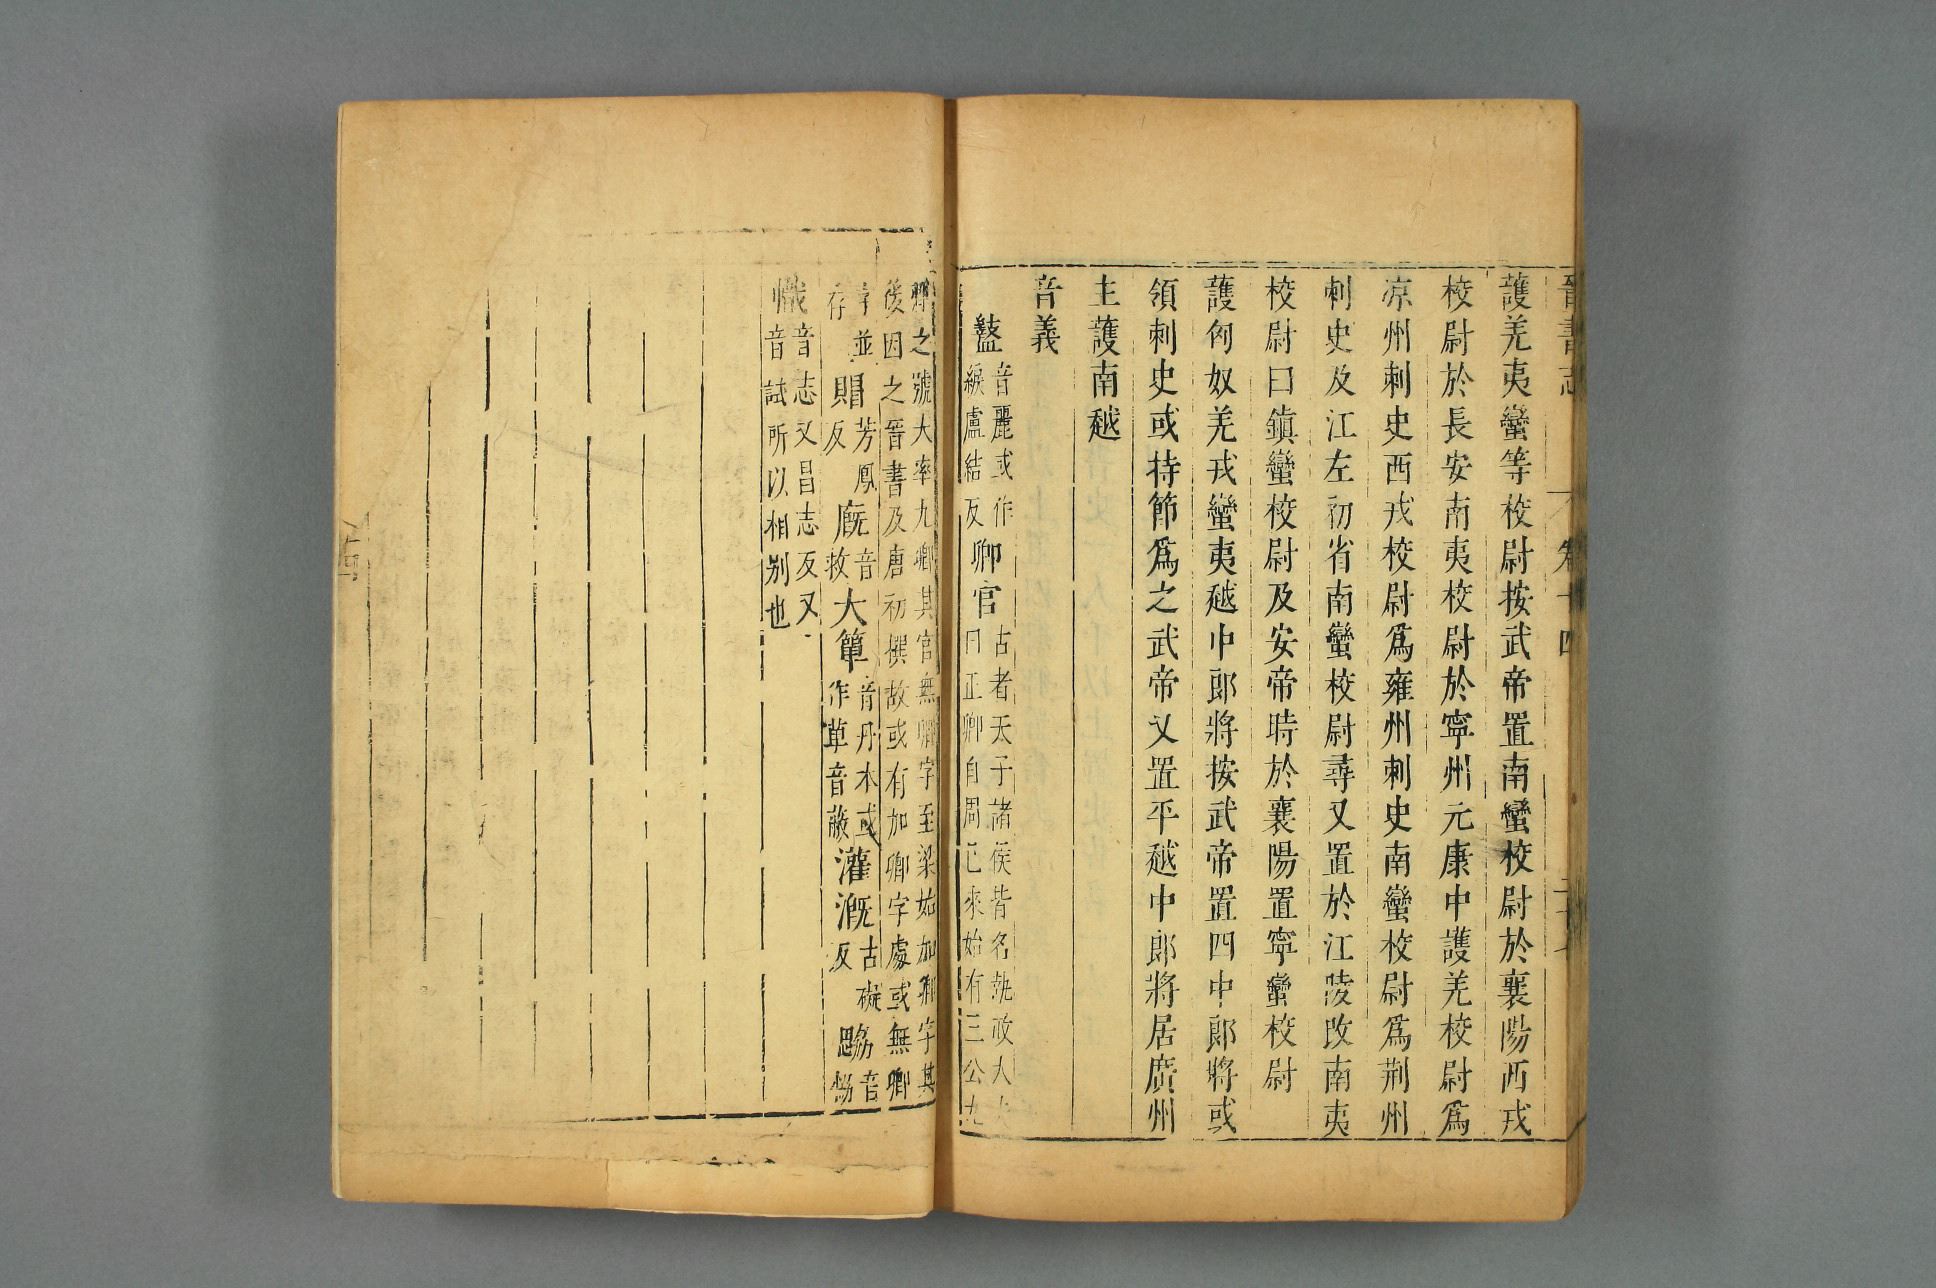 晉書志 卷十四
護羌夷蠻等校尉按武帝置南蠻校尉於襄陽西戎
校尉於長安南夷校尉於寧州元康中護羌校尉爲
凉州刺史西戎校尉爲雍州刺史南蠻校尉爲荆州
刺史及江左初省南蠻校尉尋又置於江陵改南夷
校尉曰鎮蠻校尉及安帝時於襄陽置寧蠻校尉
護匈奴羌戎蠻夷越中郎將按武帝置四中郎將或
領刺史或持節爲之武帝又置平越中郎將居廣州
主護南越
音義
盭音麗或作綟盧結反卿官古者天子諸侯皆名執政大夫曰正卿自周已來始有三公九
卿之號大率九卿其官無卿字至梁始加卿字其後因之晉書及唐初撰故或有加卿字處或無卿
字並存賵芳鳳反廐音救大簞音丹本或作草音蔽灌溉古礙反勰音勰
幟音志又昌志反又音試所以相别也